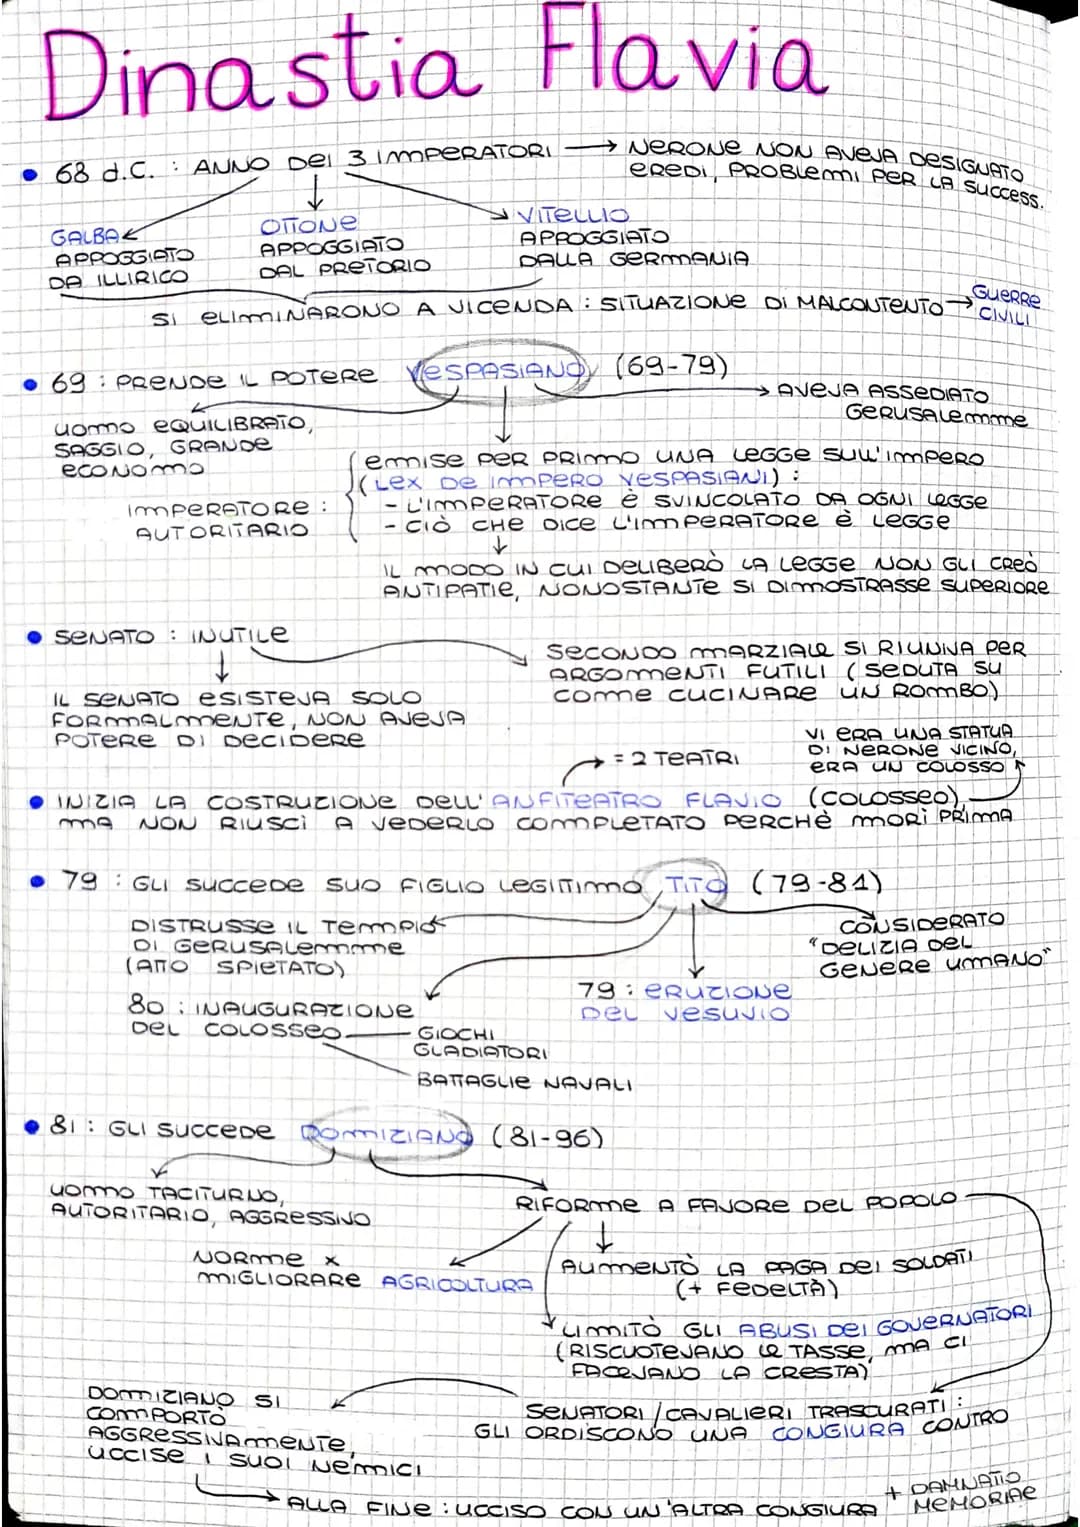 Dinastia Flavia
• 68 d.C. : ANNO DEI 3 IMPERATORI → NERONE NON AVEVA DESIGNATO
EREDI, PROBLEMI PER LA SUCCESS.
GALBA
APPOGGIATO
DA ILLIRICO
OTTONE
APPOGGIATO
DAL PRETORIO
VITELLIO
APPOGGIATO
DALLA GERMANIA
SI ELIMINARONO A VICENDA : SITUAZIONE DI MALCONTENTO → GUERRE
CIVILI
• 69 : PRENDE IL POTERE VESPASIANO (69-79)
→ AVEVA ASSEDIATO
GERUSALEMME
UOMO EQUILIBRATO,
SAGGIO, GRANDE
ECONOMO
IMPERATORE :
AUTORITARIO
EMISE PER PRIMO UNA LEGGE SULL'IMPERO
(LEX DE IMPERO VESPASIANI) :
- L'IMPERATORE È SVINCOLATO DA OGNI LEGGE
- CIÒ CHE DICE L'IMPERATORE È LEGGE
↓
IL MODO IN CUI DELIBERÒ LA LEGGE NON GLI CREÒ
ANTIPATIE, NONOSTANTE SI DIMOSTRASSE SUPERIORE
• SENATO : INUTILE
IL SENATO ESISTEVA SOLO
FORMALMENTE, NON AVEVA
POTERE DI DECIDERE
SECONDO MARZIALE SI RIUNIVA PER
ARGOMENTI FUTILI (SEDUTA SU
COME CUCINARE UN ROMBO)
→ = 2 TEATRI
VI ERA UNA STATUA
DI NERONE VICINO,
ERA UN COLOSSO
• INIZIA LA COSTRUZIONE DELL'ANFITEATRO FLAVIO (COLOSSEO),
MA NON RIUSCÌ A VEDERLO COMPLETATO PERCHÈ MORÌ PRIMA
• 79 : GLI SUCCEDE SUO FIGLIO LEGITTIMO TITO (79-81)
DISTRUSSE IL TEMPIO
DI GERUSALEMME
(ATTO SPIETATO)
CONSIDERATO
"DELIZIA DEL
GENERE UMANO"
79 : ERUZIONE
DEL VESUVIO
80 : INAUGURAZIONE
DEL COLOSSEO
GIOCHI
GLADIATORI
BATTAGLIE NAVALI
• 81 : GLI SUCCEDE DOMIZIANO (81-96)
UOMO TACITURNO,
AUTORITARIO, AGGRESSIVO
RIFORME A FAVORE DEL POPOLO
NORME x
MIGLIORARE AGRICOLTURA
AUMENTÒ LA PAGA DEI SOLDATI
(+ FEDELTÀ)
LIMITÒ GLI ABUSI DEI GOVERNATORI
(RISCUOTEVANO LE TASSE, MA CI
FACEVANO LA CRESTA)
SENATORI/CAVALIERI TRASCURATI :
GLI ORDISCONO UNA CONGIURA CONTRO
DOMIZIANO SI
COMPORTÒ
AGGRESSIVAMENTE,
UCCISE I SUOI NEMICI
→ ALLA FINE : UCCISO CON UN'ALTRA CONGIURA + DAMNATIO
MEMORIAE